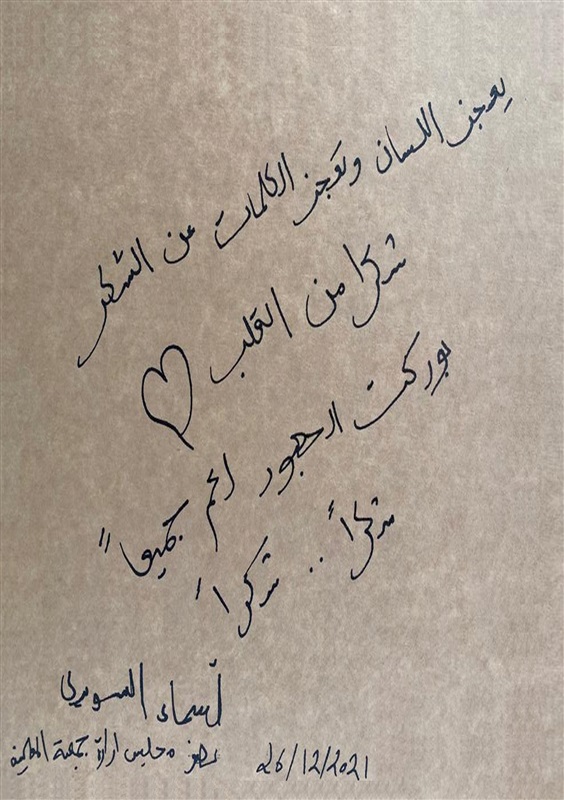 يعجز اللسان وتعجز الكلمات عن الشكر
شكرا من القلب
بوركت الجهود لكم جميعاً
شكراً .. شكراً
أسماء السويدي
عضو مجلس ادارة جمعية
26/12/2021